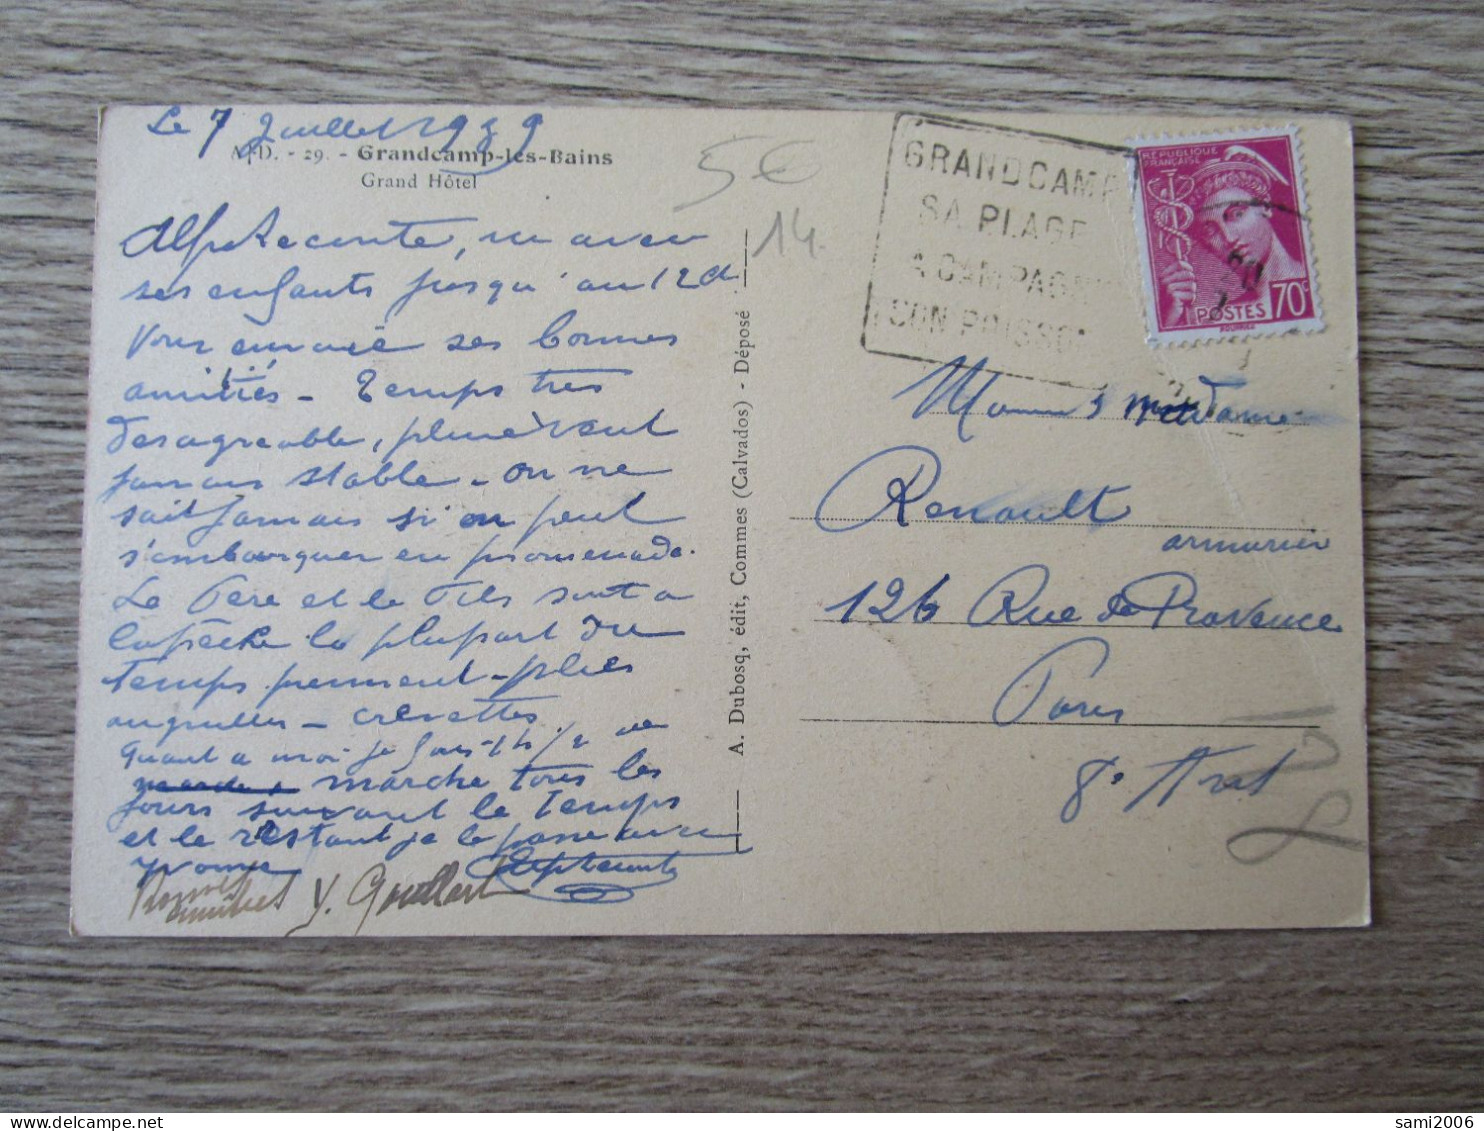 Le 7 Juillet 1939
A. D. - 29. - Grandcamp-les-Bains
Grand Hôtel
5€
14.
GRANDCAMP
SA PLAGE
SA CAMPAGNE
SON POISSON
RÉPUBLIQUE
FRANÇAISE
POSTES 70c
ici avec
ses enfants jusqu'au 12 et
vous envoie ses bonnes
amitiés - Temps très
desagreable, pluie vent
jamais stable - on ne
sait jamais si on peut
s'embarquer en promenade.
Le Père et le Fils sont a
la pêche la plupart du
temps prennent - plies
anguilles - crevettes
Quant a moi je fais 1 h 1/2 de
marche tous les
jours suivant le temps
et le restant je le passe avec
Yvonne
Bonnes
amitiés Y. Gouillart
A. Dubosq, édit, Commes (Calvados) - Déposé
Monsieur Madame
Renault
armurier
126 Rue de Provence
Paris
8e Arrt
sami2006